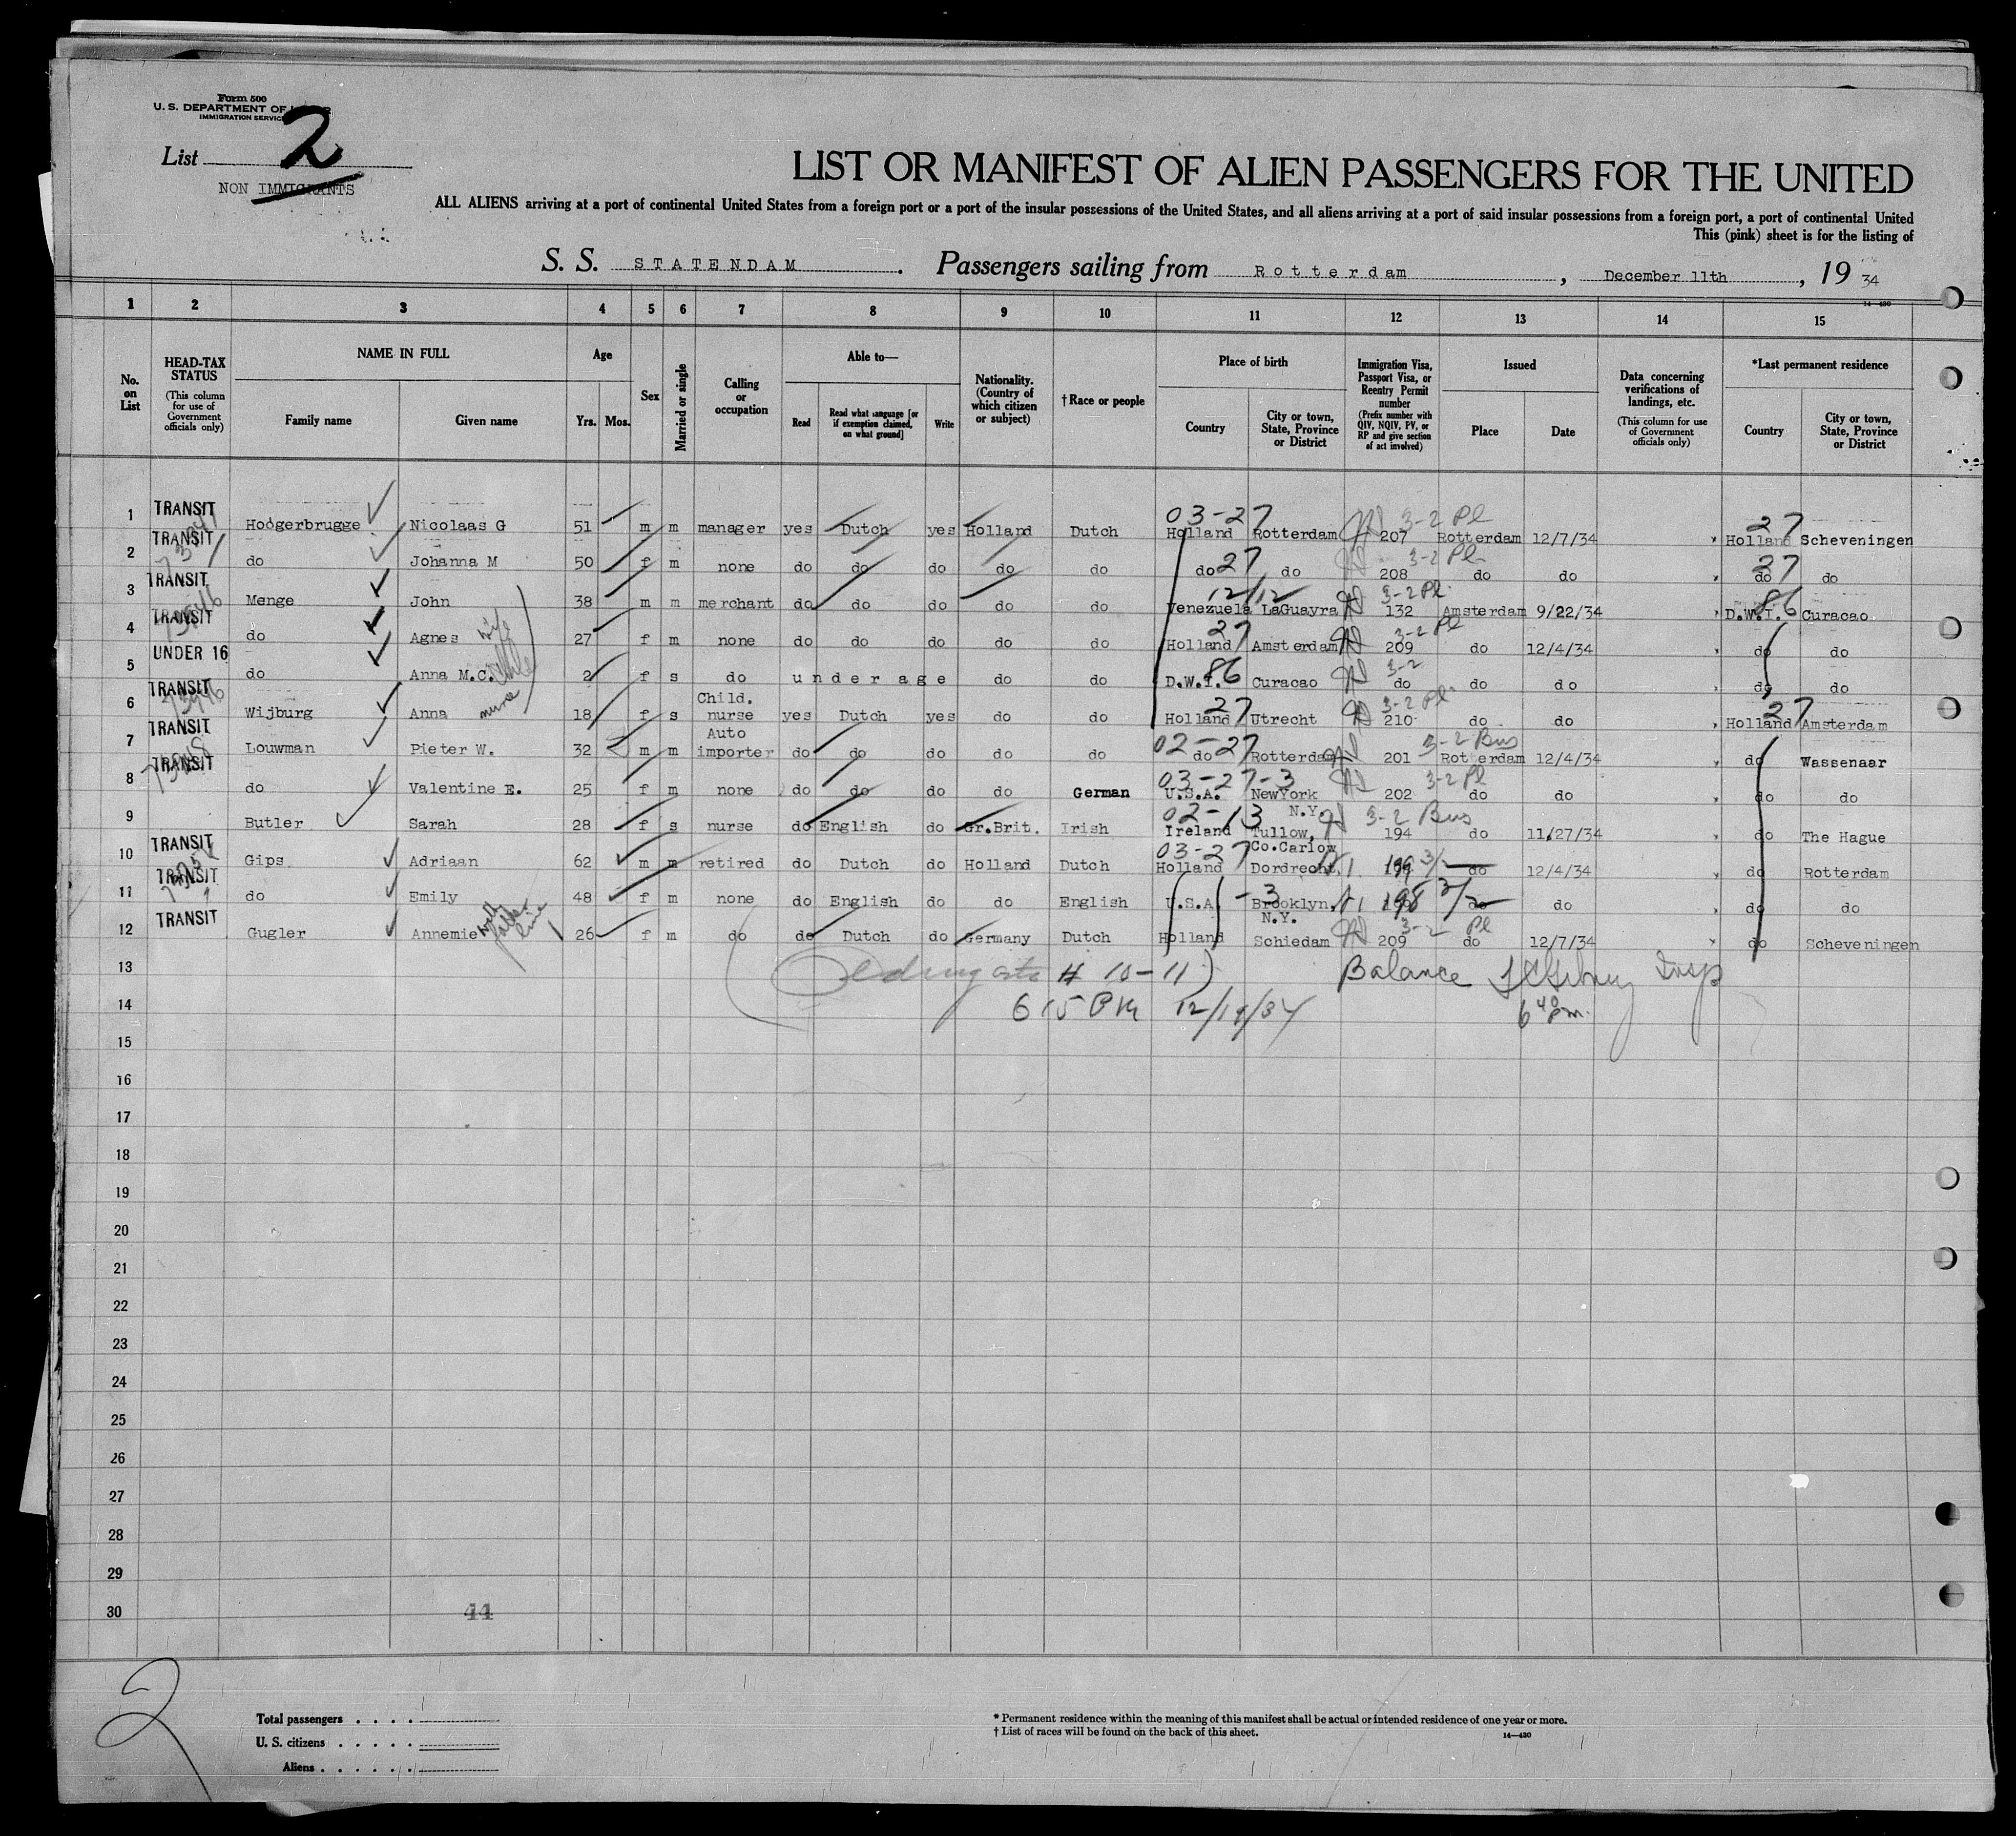 Form 500
U. S. DEPARTMENT OF LABOR
IMMIGRATION SERVICE
List 2
NON IMMIGRANTS
LIST OR MANIFEST OF ALIEN PASSENGERS FOR THE UNITED
ALL ALIENS arriving at a port of continental United States from a foreign port or a port of the insular possessions of the United States, and all aliens arriving at a port of said insular possessions from a foreign port, a port of continental United
This (pink) sheet is for the listing of
S. S. STATENDAM. Passengers sailing from Rotterdam, December 11th, 19 34
14—430
1 2 3 4 5 6 7 8 9 10 11 12 13 14 15
No. on List
HEAD-TAX STATUS (This column for use of Government officials only)
NAME IN FULL
Family name Given name
Age
Yrs. Mos.
Sex
Married or single
Calling or occupation
Able to—
Read Read what language [or if exemption claimed, on what ground] Write
Nationality. (Country of which citizen or subject)
†Race or people
Place of birth
Country City or town, State, Province or District
Immigration Visa, Passport Visa, or Reentry Permit number (Prefix number with QIV, NQIV, PV, or RP and give section of act involved)
Issued
Place Date
Data concerning verifications of landings, etc. (This column for use of Government officials only)
*Last permanent residence
Country City or town, State, Province or District
03-27 3-2 Pl 27
1 TRANSIT Hoogerbrugge Nicolaas G 51 m m manager yes Dutch yes Holland Dutch Holland Rotterdam 207 Rotterdam 12/7/34 Holland Scheveningen
27 3-2 Pl 27
2 TRANSIT do Johanna M 50 f m none do do do do do do do 208 do do do do
12/12 3-2 Pl 86
3 TRANSIT Menge John 38 m m merchant do do do do do Venezuela LaGuayra 132 Amsterdam 9/22/34 D.W.I. Curacao
27 3-2 Pl
4 TRANSIT do Agnes wife 27 f m none do do do do do Holland Amsterdam 209 do 12/4/34 do do
86 3-2
5 UNDER 16 do Anna M.C. 2 f s do under age do do D.W.I. Curacao do do do do do
27 3-2 Pl 27
6 TRANSIT Wijburg Anna nurse 18 f s Child. nurse yes Dutch yes do do Holland Utrecht 210 do do Holland Amsterdam
02-27 3-2 Bus
7 TRANSIT Louwman Pieter W. 32 m m Auto importer do do do do do do Rotterdam 201 Rotterdam 12/4/34 do Wassenaar
03-27-3 3-2 Pl
8 TRANSIT do Valentine E. 25 f m none do do do do German U.S.A. NewYork N.Y. 202 do do do do
02-13 3-2 Bus
9 Butler Sarah 28 f s nurse do English do Gr.Brit. Irish Ireland Tullow, Co.Carlow 194 do 11/27/34 do The Hague
03-27
10 TRANSIT Gips Adriaan 62 m m retired do Dutch do Holland Dutch Holland Dordrecht 199 do 12/4/34 do Rotterdam
-3
11 TRANSIT do Emily 48 f m none do English do do English U.S.A. Brooklyn, N.Y. 198 do do do do
3-2 Pl
12 TRANSIT Gugler Annemie 26 f m do do Dutch do Germany Dutch Holland Schiedam 209 do 12/7/34 do Scheveningen
13 # 10-11) Balance Insp
14 6 15 PM 12/19/34 6 40 pm.
15
16
17
18
19
20
21
22
23
24
25
26
27
28
29
30 44
2
Total passengers . . . .
U. S. citizens . . . . .
Aliens . . . . . .
* Permanent residence within the meaning of this manifest shall be actual or intended residence of one year or more.
† List of races will be found on the back of this sheet.
14—430